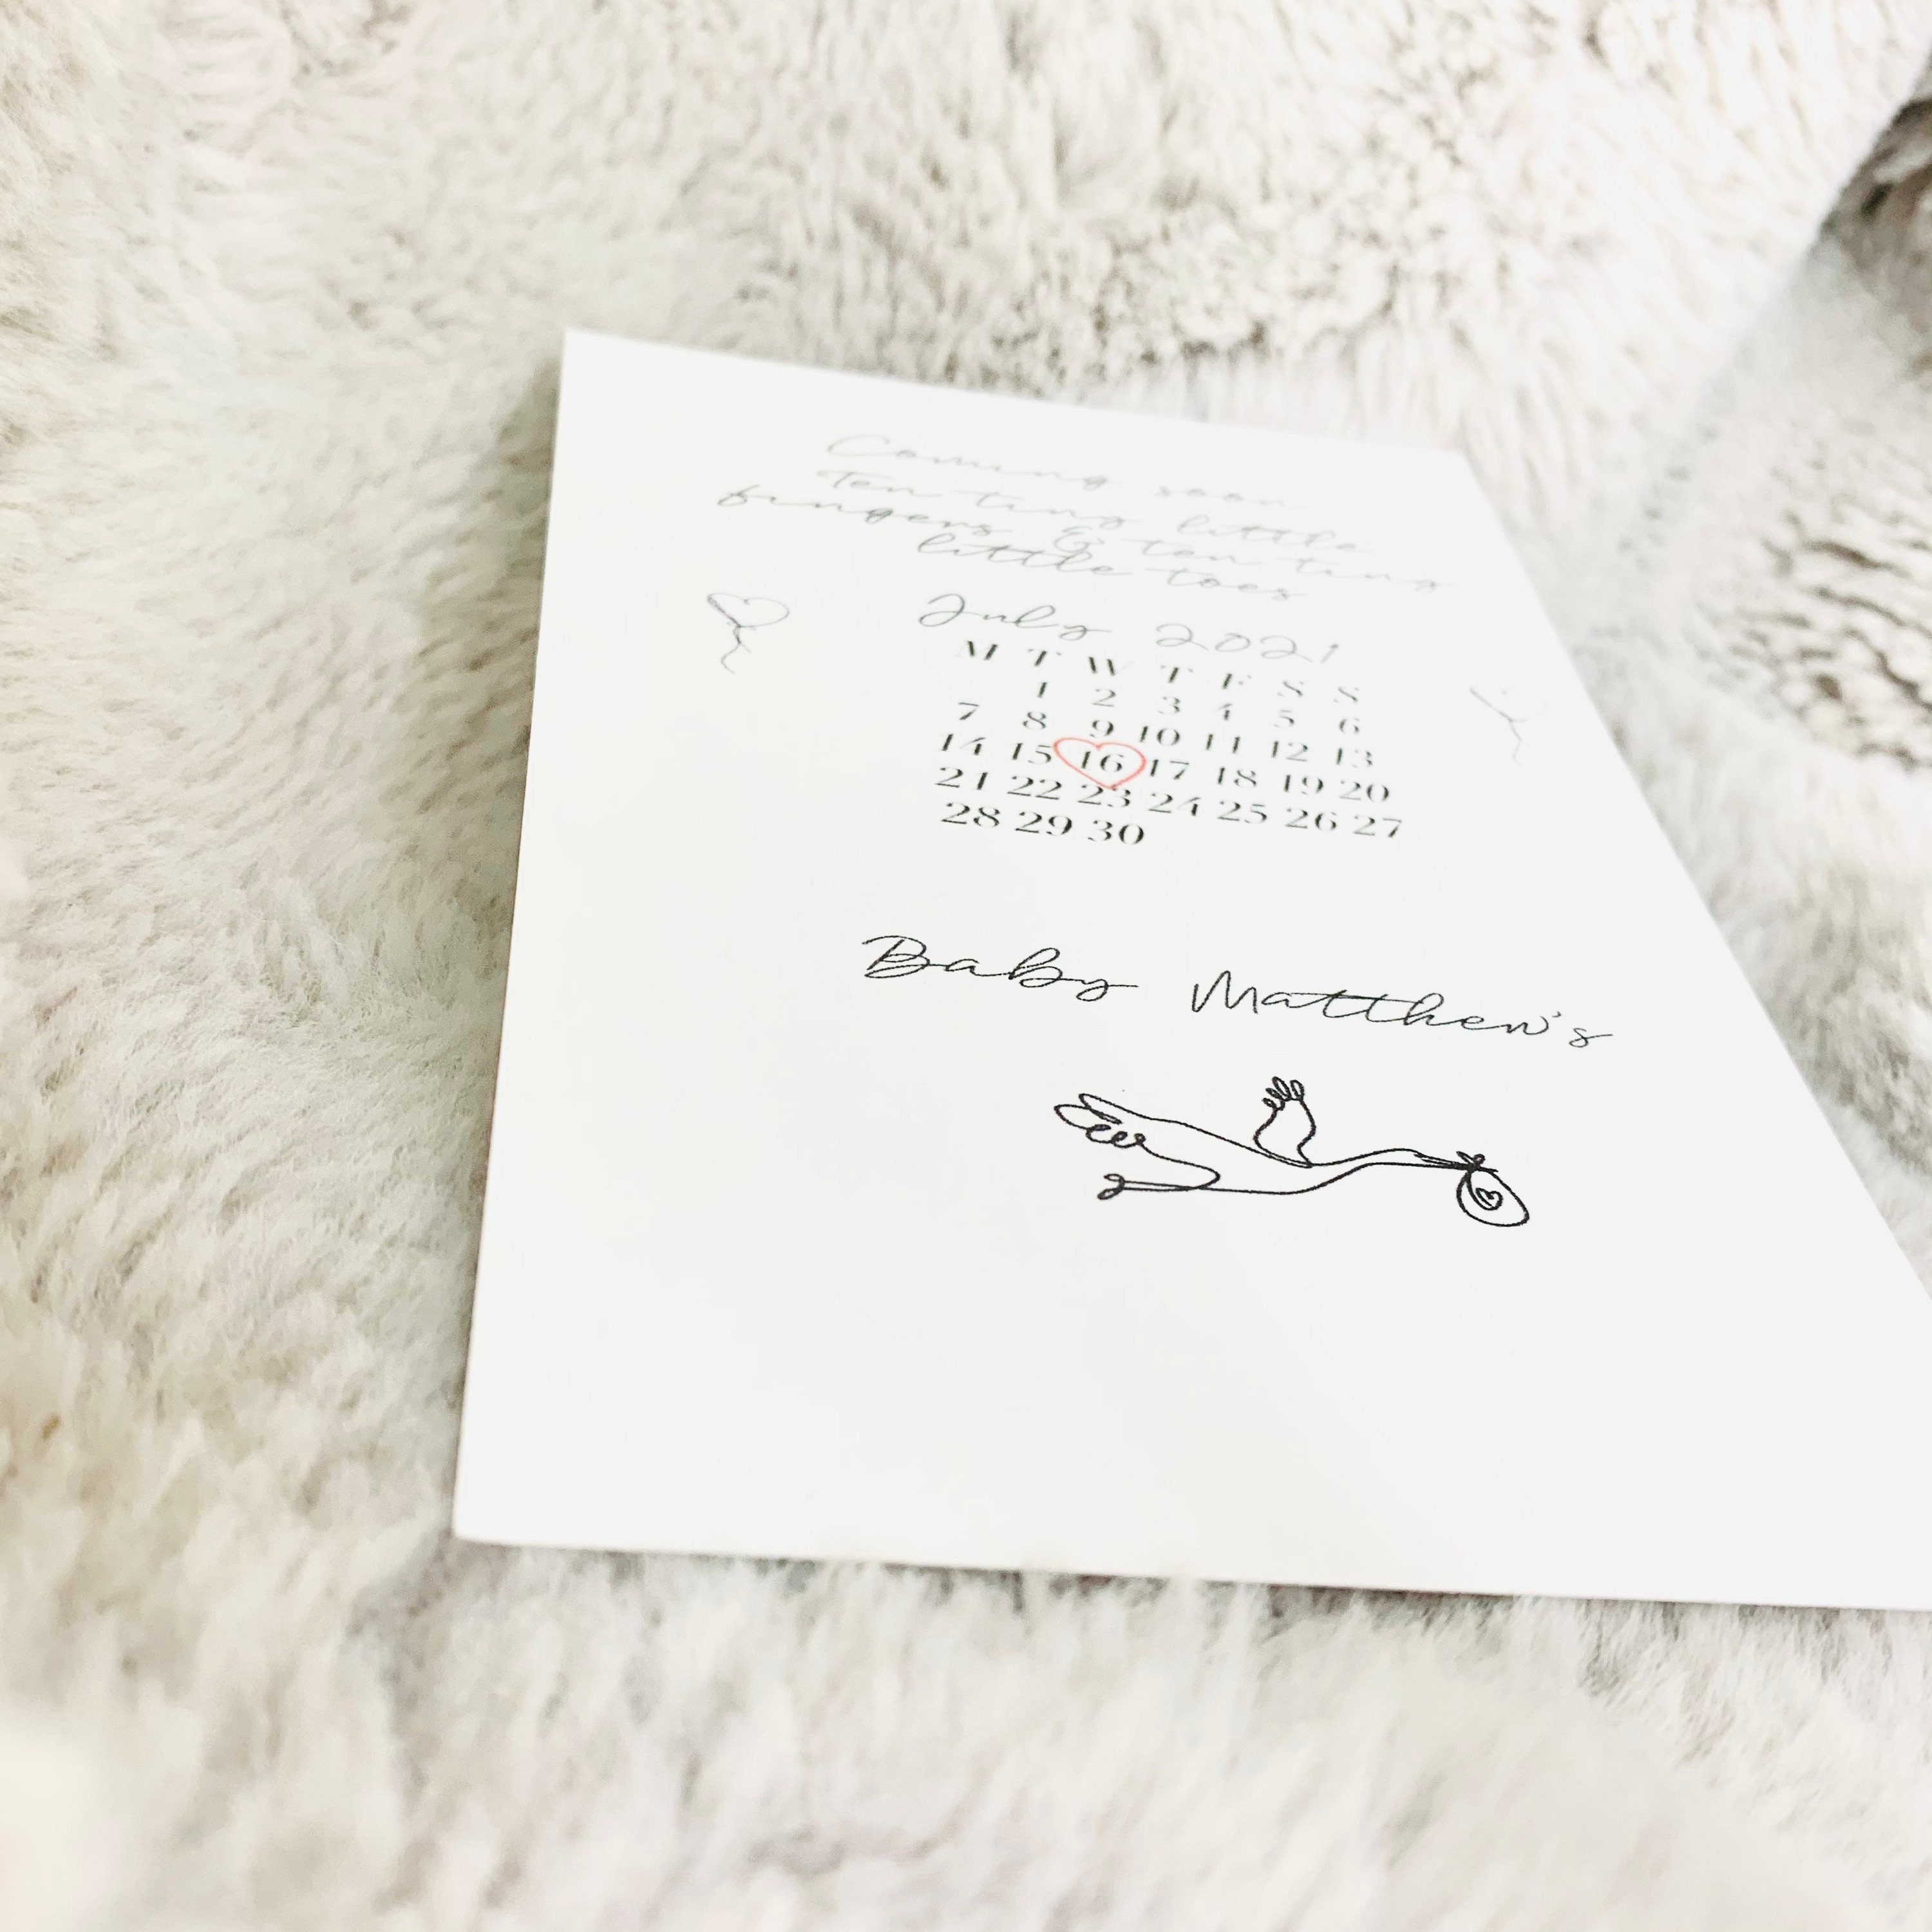 Coming soon
Ten tiny little
fingers & ten tiny
little toes
July 2021
M T W T F S S
1 2 3 4 5 6
7 8 9 10 11 12 13
14 15 16 17 18 19 20
21 22 23 24 25 26 27
28 29 30
Baby Matthew's